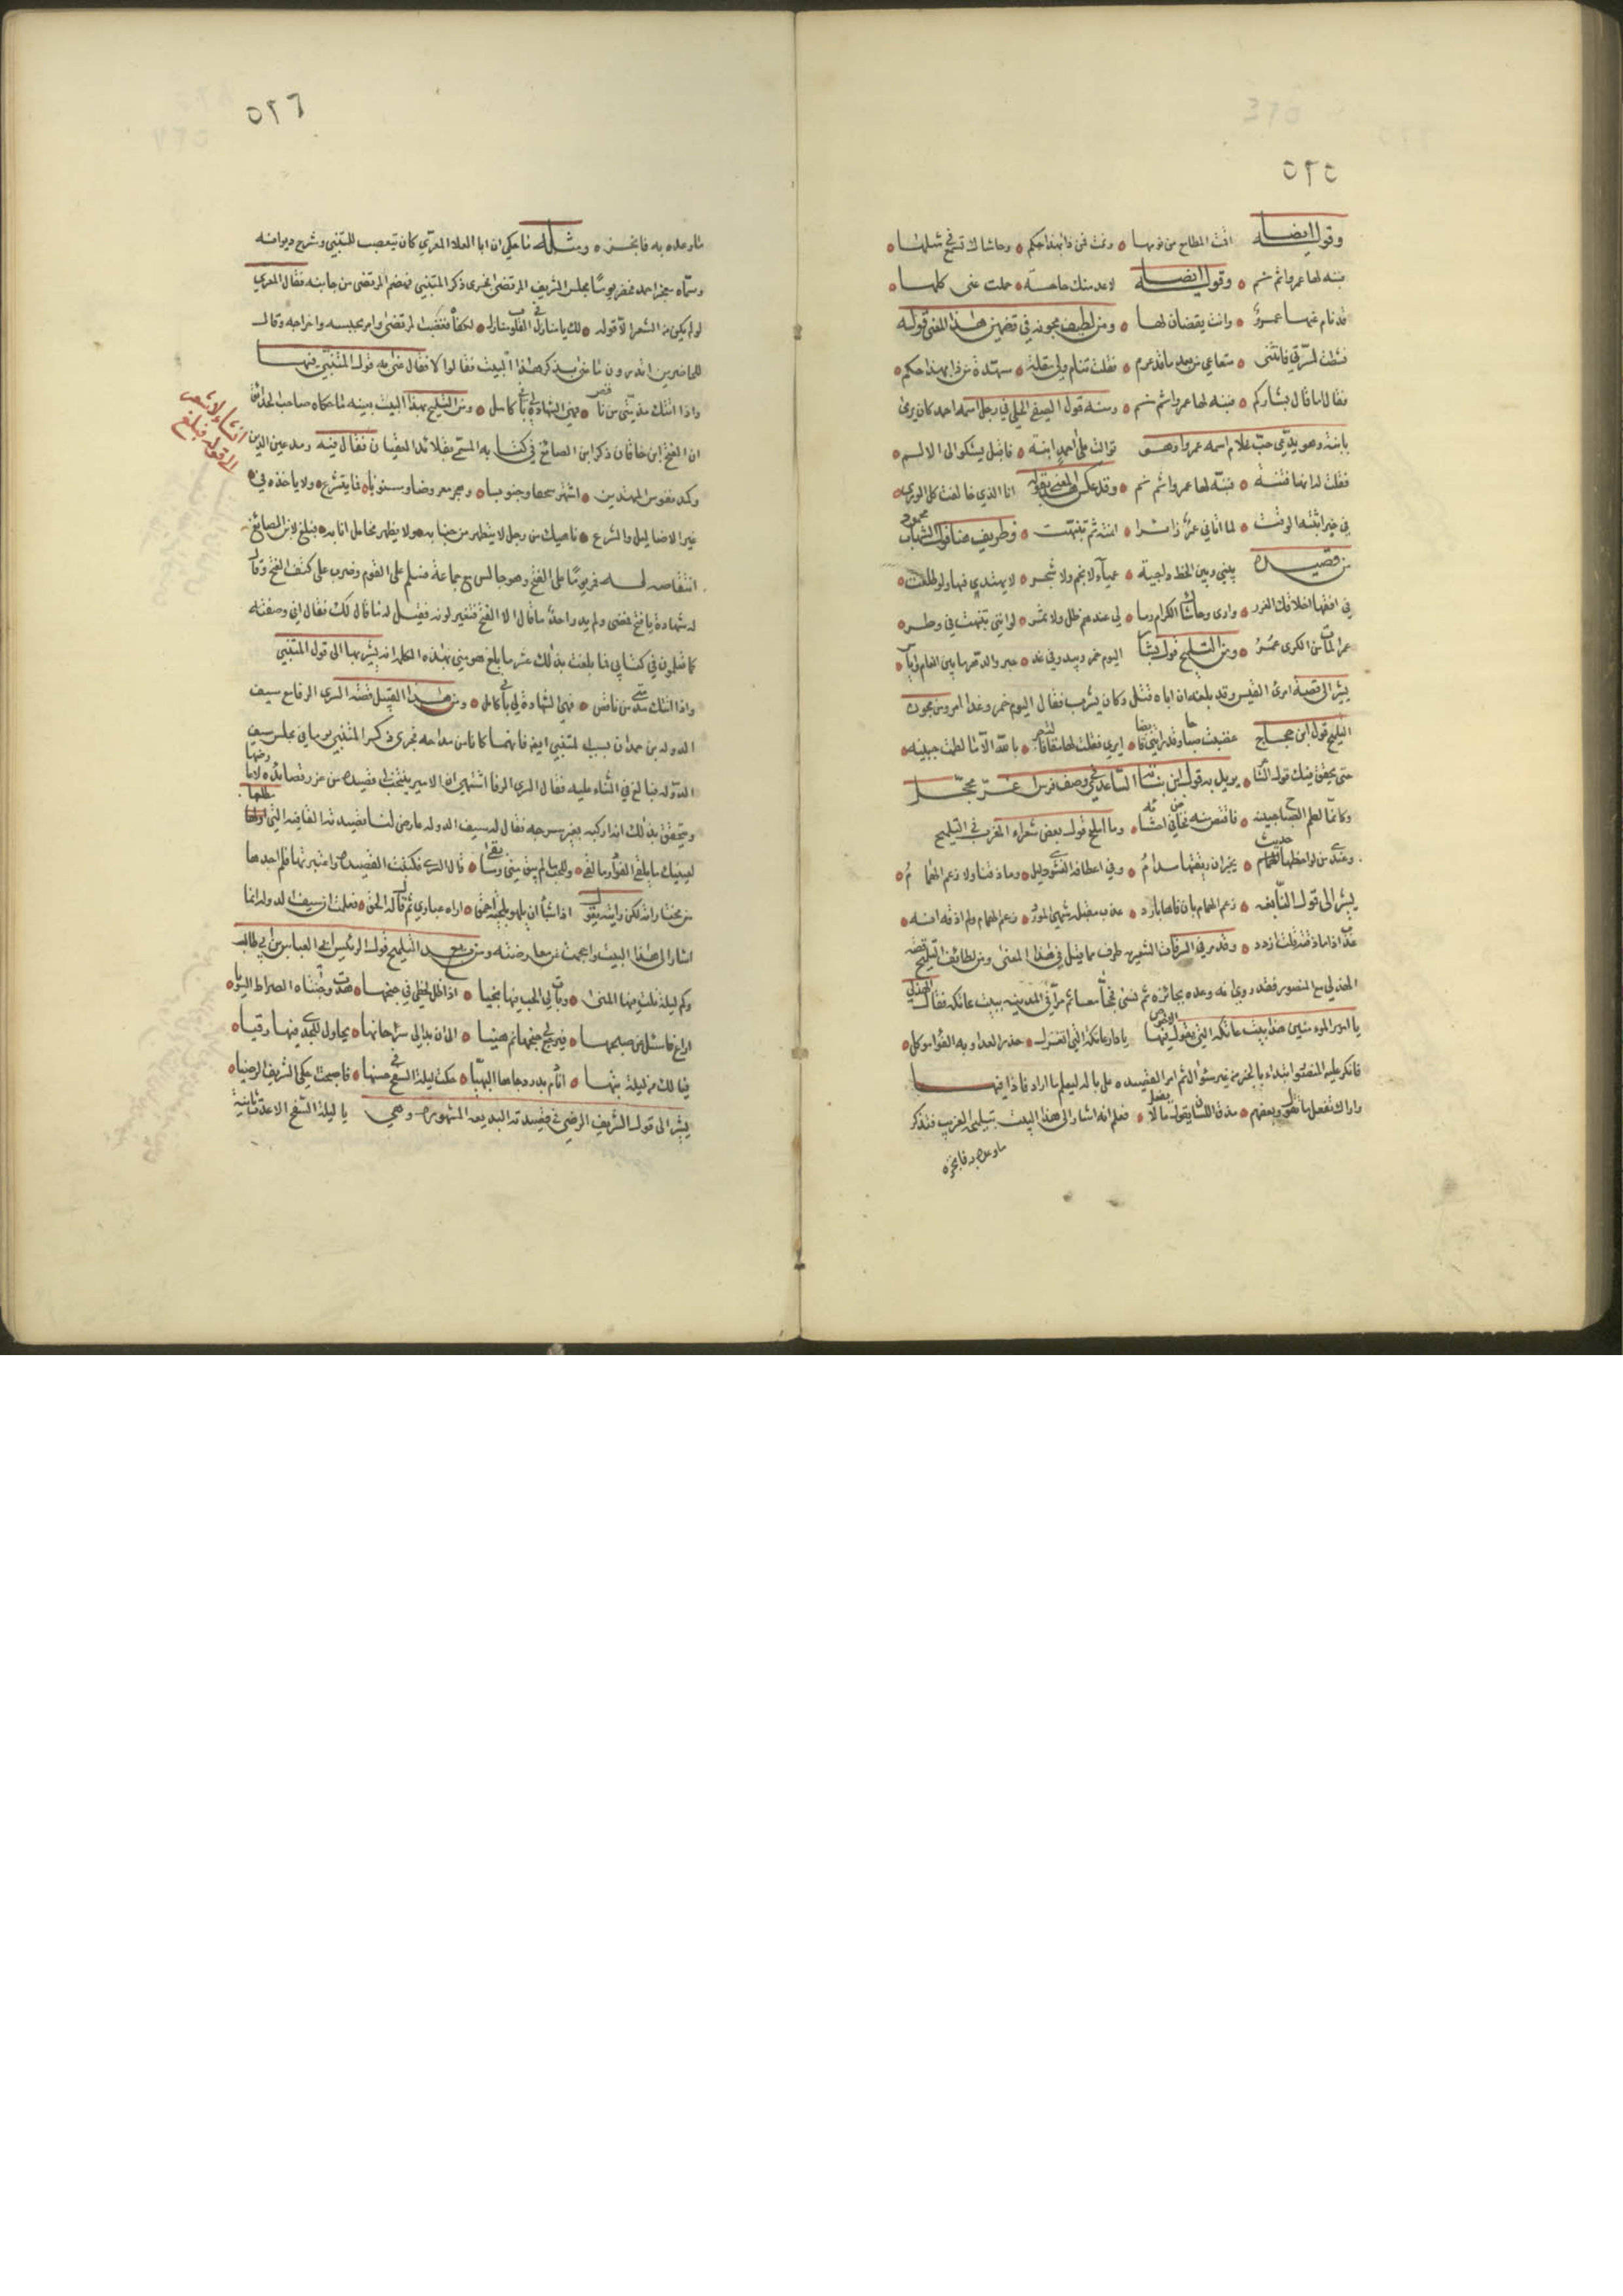 ٥٢٥
وقوله ايضا اقت المطامع من نومها • ونمت فمن ذا بهذا حكم • وحاشاك ترضى لمثلها •
فنبه لها عمرا ثم نم • وقوله ايضا لا عدمنك حاجة • حملت عني كلها •
قد نام عنها عمرو • وانت يقضان لها • ومن لطيف مجونه في تضمين هذا المعنى قوله
فقال اما قال بشاركم • فنبه لها عمرا ثم نم • ومنه قول الصفي الحلي في رجل اسمه احمد كان يرمى
بابنة وهو يدعي حب غلام اسمه عمرو وهو توالت على احمد ابنته • فاقبل يشكو الى الالم •
فقلت له انها فتنة • فنبه لها عمرا ثم نم • وقد عكس المعنى بقوله انا الذي خالفت كل الورى •
لما اتاني عمرو زائرا • امته ثم تنبهت • وظريف هنا قول الشهاب محمود
من قصيدة بيني وبين الحظ داجية • عمياء لا نجم ولا شجر • لا يهتدي فيها ولو طلعت •
في افقها اخلاقك الغرر • وارى وحاشاك الكرام وما • لي عندهم ظل ولا ثمر • لو انني تنبهت في وطر •
عمرا لمات من الكرى عمر • ومن التلميح قول بشار اليوم خمر ويبدو في غد خبر والدهر ما بين انعام وابآس •
يشير الى قصة امرئ القيس وقد بلغه ان اباه قتل وكان يشرب فقال اليوم خمر وغدا امر ومن مجون
التلميح قول ابن حجاج غضبت صباح وقد راتني قابضا • ايري فقلت لها مقالة فاجر • بالله الا ما لطمت جبينه •
حتى يحقق فيك قول الشاعر • يريد به قول ابن نباتة السعدي في وصف فرس اغر محجل
وكانما لطم الصباح جبينه • فاقتص منه فخاض في احشائه • وما املح قول بعض شعراء المغرب في التلميح
وعندي من لواحظها حديث • يخبر ان ريقتها مدام • وفي اعطافها النشوى دليل • وما ذقنا ولا زعم الهمام •
يشير الى قول النابغة • زعم الهمام بان فاها بارد • عذب مقبله شهي المورد • زعم الهمام ولم اذقه انه •
عذب اذا ما ذقته قلت ازدد • وقد مر في السرقات الشعريه طرف مما قيل في هذا المعنى ومن لطائف التلميح قصة
الهذلي مع المنصور فقد روي انه وعده بجائزة ثم نسى فحجا معا ثم مرا في المدينه ببيت عاتكه فقال الهذلي
يا امير المومنين هذا بيت عاتكه التي يقول فيها الاحوص يا دار عاتكة التي اتعزل • حذر العدا وبه الفؤاد موكل •
فانكر عليه المنصور ابتداء بالخبر من غير سؤال ثم امر القصيده على باله ليعلم ما اراد فاذا فيها
واراك تفعل ما تقول وبعضهم • مذق اللسان يقول ما لا يفعل • فعلم انه اشار الى هذا البيت بتلميحه الغريب فتذكر
ما وعده به فانجزه
٥٢٦
ما وعده به فانجزه • ومثله ما حكي ان ابا العلا المعري كان يتعصب للمتنبي وشرح ديوانه
وسماه معجز احمد فحضر يوما مجلس الشريف المرتضى فجرى ذكر المتنبي فهضم المرتضى من جانبه فقال المعري
لو لم يكن من الشعر الا قوله • لك يا منازل في القلوب منازل • لكفاه فغضب المرتضى وامر بحبسه واخراجه وقال
للحاضرين اتدرون ما عنى بذكر هذا البيت فقالوا لا فقال عنى به قول المتنبي فيها
واذا اتتك مذمتي من ناقص • فهي الشهادة لي باني كامل • ومن التلميح بهذا البيت بعينه ما حكاه صاحب الحدائق
ان الفتح ابن خاقان ذكر ابن الصائغ في كتابه المسمى بقلائد العقيان فقال فيه رمد عين الدين
انشاء لا شعر الى قوله فبلغ
وكمد نفوس المهتدين • اشتهر سخفا وجنونا • وهجر مفروضا ومسنونا • فما يتشرع • ولا ياخذ في
غير الاضاليل ولا يشرع • ناهيك من رجل لا يتطهر من جنابه ولا يظهر مخايل انابه • فبلغ لابن الصائغ
انتقاصه له فمر يوما على الفتح وهو جالس مع جماعة فسلم على القوم وضرب على كتف الفتح وقال
له شهادة يا فتح فمضى ولم يدر احد ما قال الا الفتح فتغير لونه فقيل له ما قال لك فقال اني وصفته
كما تعلمون في كتابي فما بلغت بذلك عشر ما بلغ هو مني بهذه الكلمة انه يشير بها الى قول المتنبي
واذا اتتك مذمتي من ناقص • فهي الشهادة لي باني كامل • ومن هذا القبيل قصة السري الرفا مع سيف
الدوله بن حمدان بسبب المتنبي ايضا فانهما كانا من مداحه فجرى ذكر المتنبي يوما في مجلس سيف
الدوله فبالغ في الثناء عليه فقال السري الرفا اشتهي ان الامير ينتخب لي قصيده من غرر قصائده لاعارضها
ويتحقق بذلك انه اركبه بغير سرجه فقال له سيف الدوله عارض لنا قصيدته القافيه التي مطلعها
لعينيك ما يلقى الفؤاد وما لقى • وللحب ما لم يبق مني وما بقى • قال السري فكتبت القصيدة واعتبرتها فلم اجدها
من مختاراته لكن رايته يقول اذا شاء ان يلهو بلحية احمق • اراه غباري ثم قال له الحق • فعلمت ان سيف الدوله انما
اشار الى هذا البيت واحجمت عن معارضته ومن بديع التلميح قول الرئيس ابي العباس بن ابي طالب
وكم ليلة نلت فيها المنى • وبات لي الحب فيها نجيا • اذا ظل لحظي في جنحها • هدت وجنتاه الصراط السويا •
فيا لك من ليلة بتها • انادم بدر دجاها البهيا • حكت ليلة السفح في حسنها • فاصبحت احكي الشريف الرضيا •
يشير الى قول الشريف الرضي في قصيدته البديعه المشهوره وهي يا ليلة السفح الا عدت ثانية